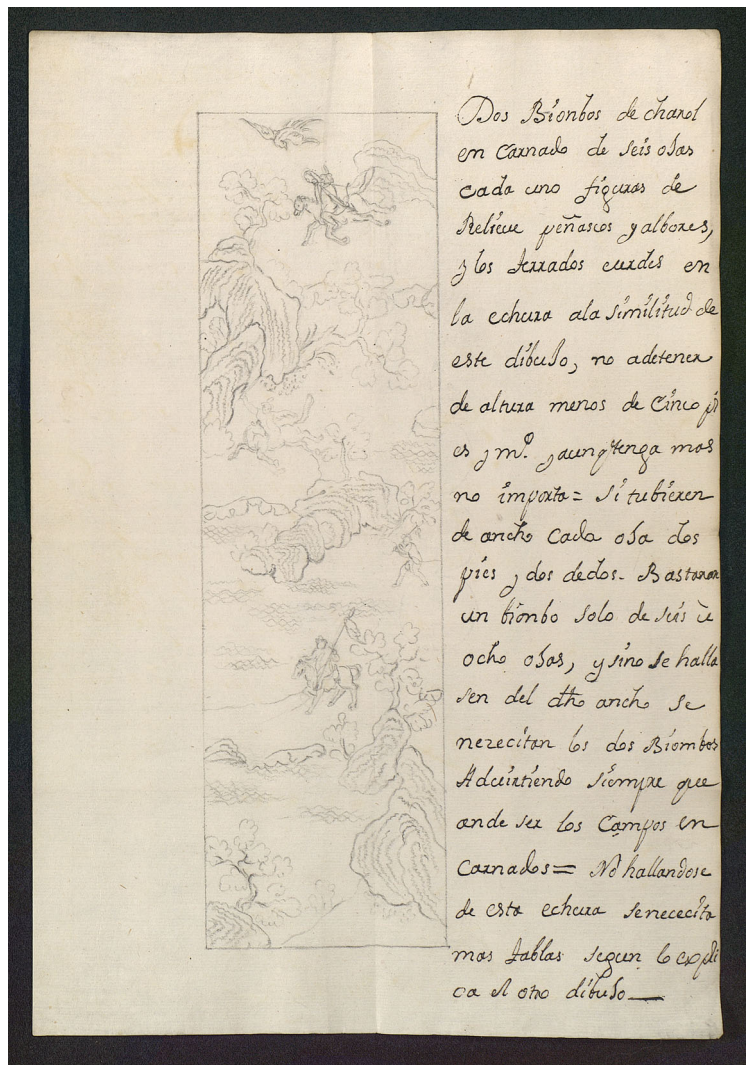 Dos Bionbos de charol
en Carnado de seis ojas
cada uno figuras de
Relieue peñascos y albores,
y los terrados eurdes en
la echura ala similitud de
este dibujo, no adetener
de altura menos de Cinco pi
es y mº. y aunq tenga mas
no importa = si tubieren
de ancho Cada oja dos
pies y dos dedos. Bastaran
un bionbo solo de seis ù
ocho ojas, y sino se halla
sen del dho ancho se
nezecitan los dos Biombos
Adcuirtiendo siempre que
ande ser los Campos en
Carnados = No hallandose
de esta echura senececita
mas tablas segun lo expli
ca el otro dibujo